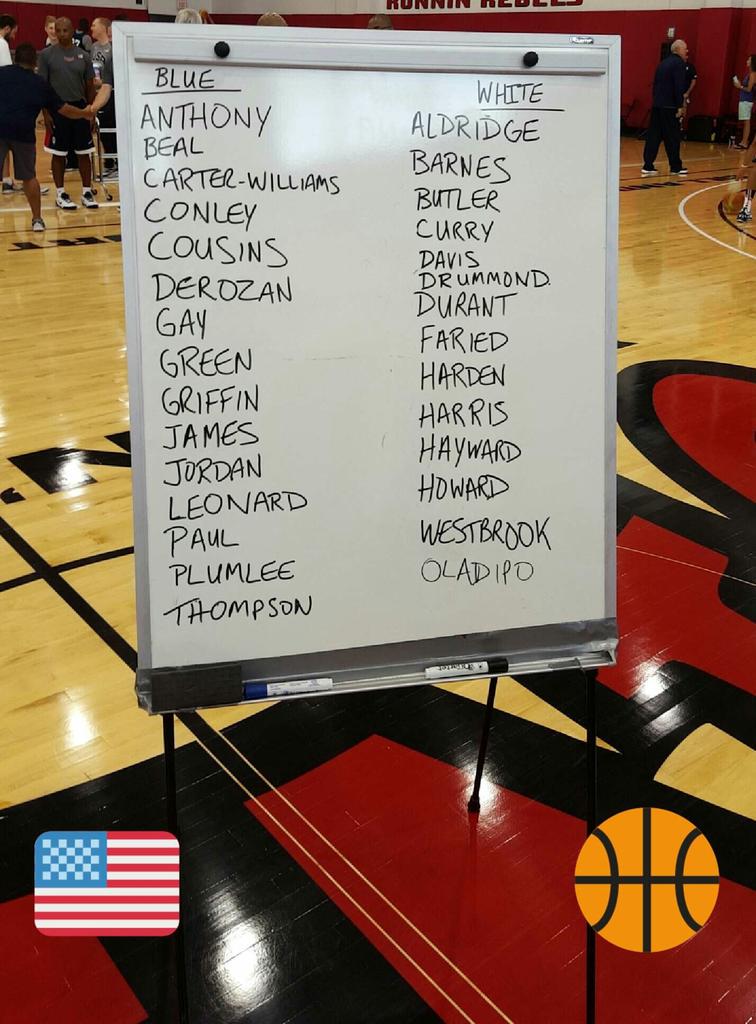 RUNNIN REBELS
BLUE
ANTHONY
BEAL
CARTER-WILLIAMS
CONLEY
COUSINS
DEROZAN
GAY
GREEN
GRIFFIN
JAMES
JORDAN
LEONARD
PAUL
PLUMLEE
THOMPSON
WHITE
ALDRIDGE
BARNES
BUTLER
CURRY
DAVIS
DRUMMOND.
DURANT
FARIED
HARDEN
HARRIS
HAYWARD
HOWARD
WESTBROOK
OLADIPO